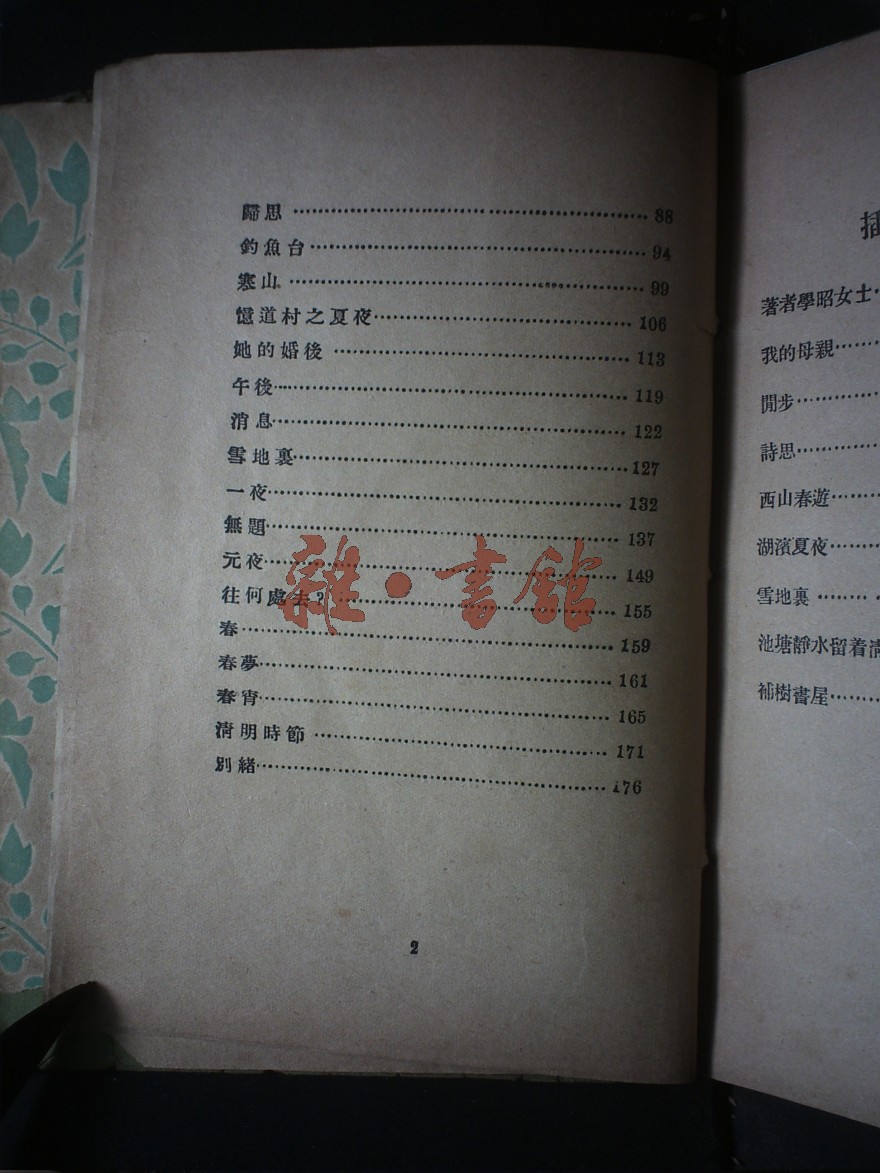 歸思 ……… 88
釣魚台 ……… 94
寒山 ……… 99
憶道村之夏夜 ……… 106
她的婚後 ……… 113
午後 ……… 119
消息 ……… 122
雪地裏 ……… 127
一夜 ……… 132
無題 ……… 137
元夜 ……… 149
往何處去？ ……… 155
春 ……… 159
春夢 ……… 161
春宵 ……… 165
清明時節 ……… 171
別緒 ……… 176
2
雜·書館
插
著者學昭女士…
我的母親……
閒步………
詩思………
西山春遊……
湖濱夏夜……
雪地裏………
池塘靜水留着清
補樹書屋……